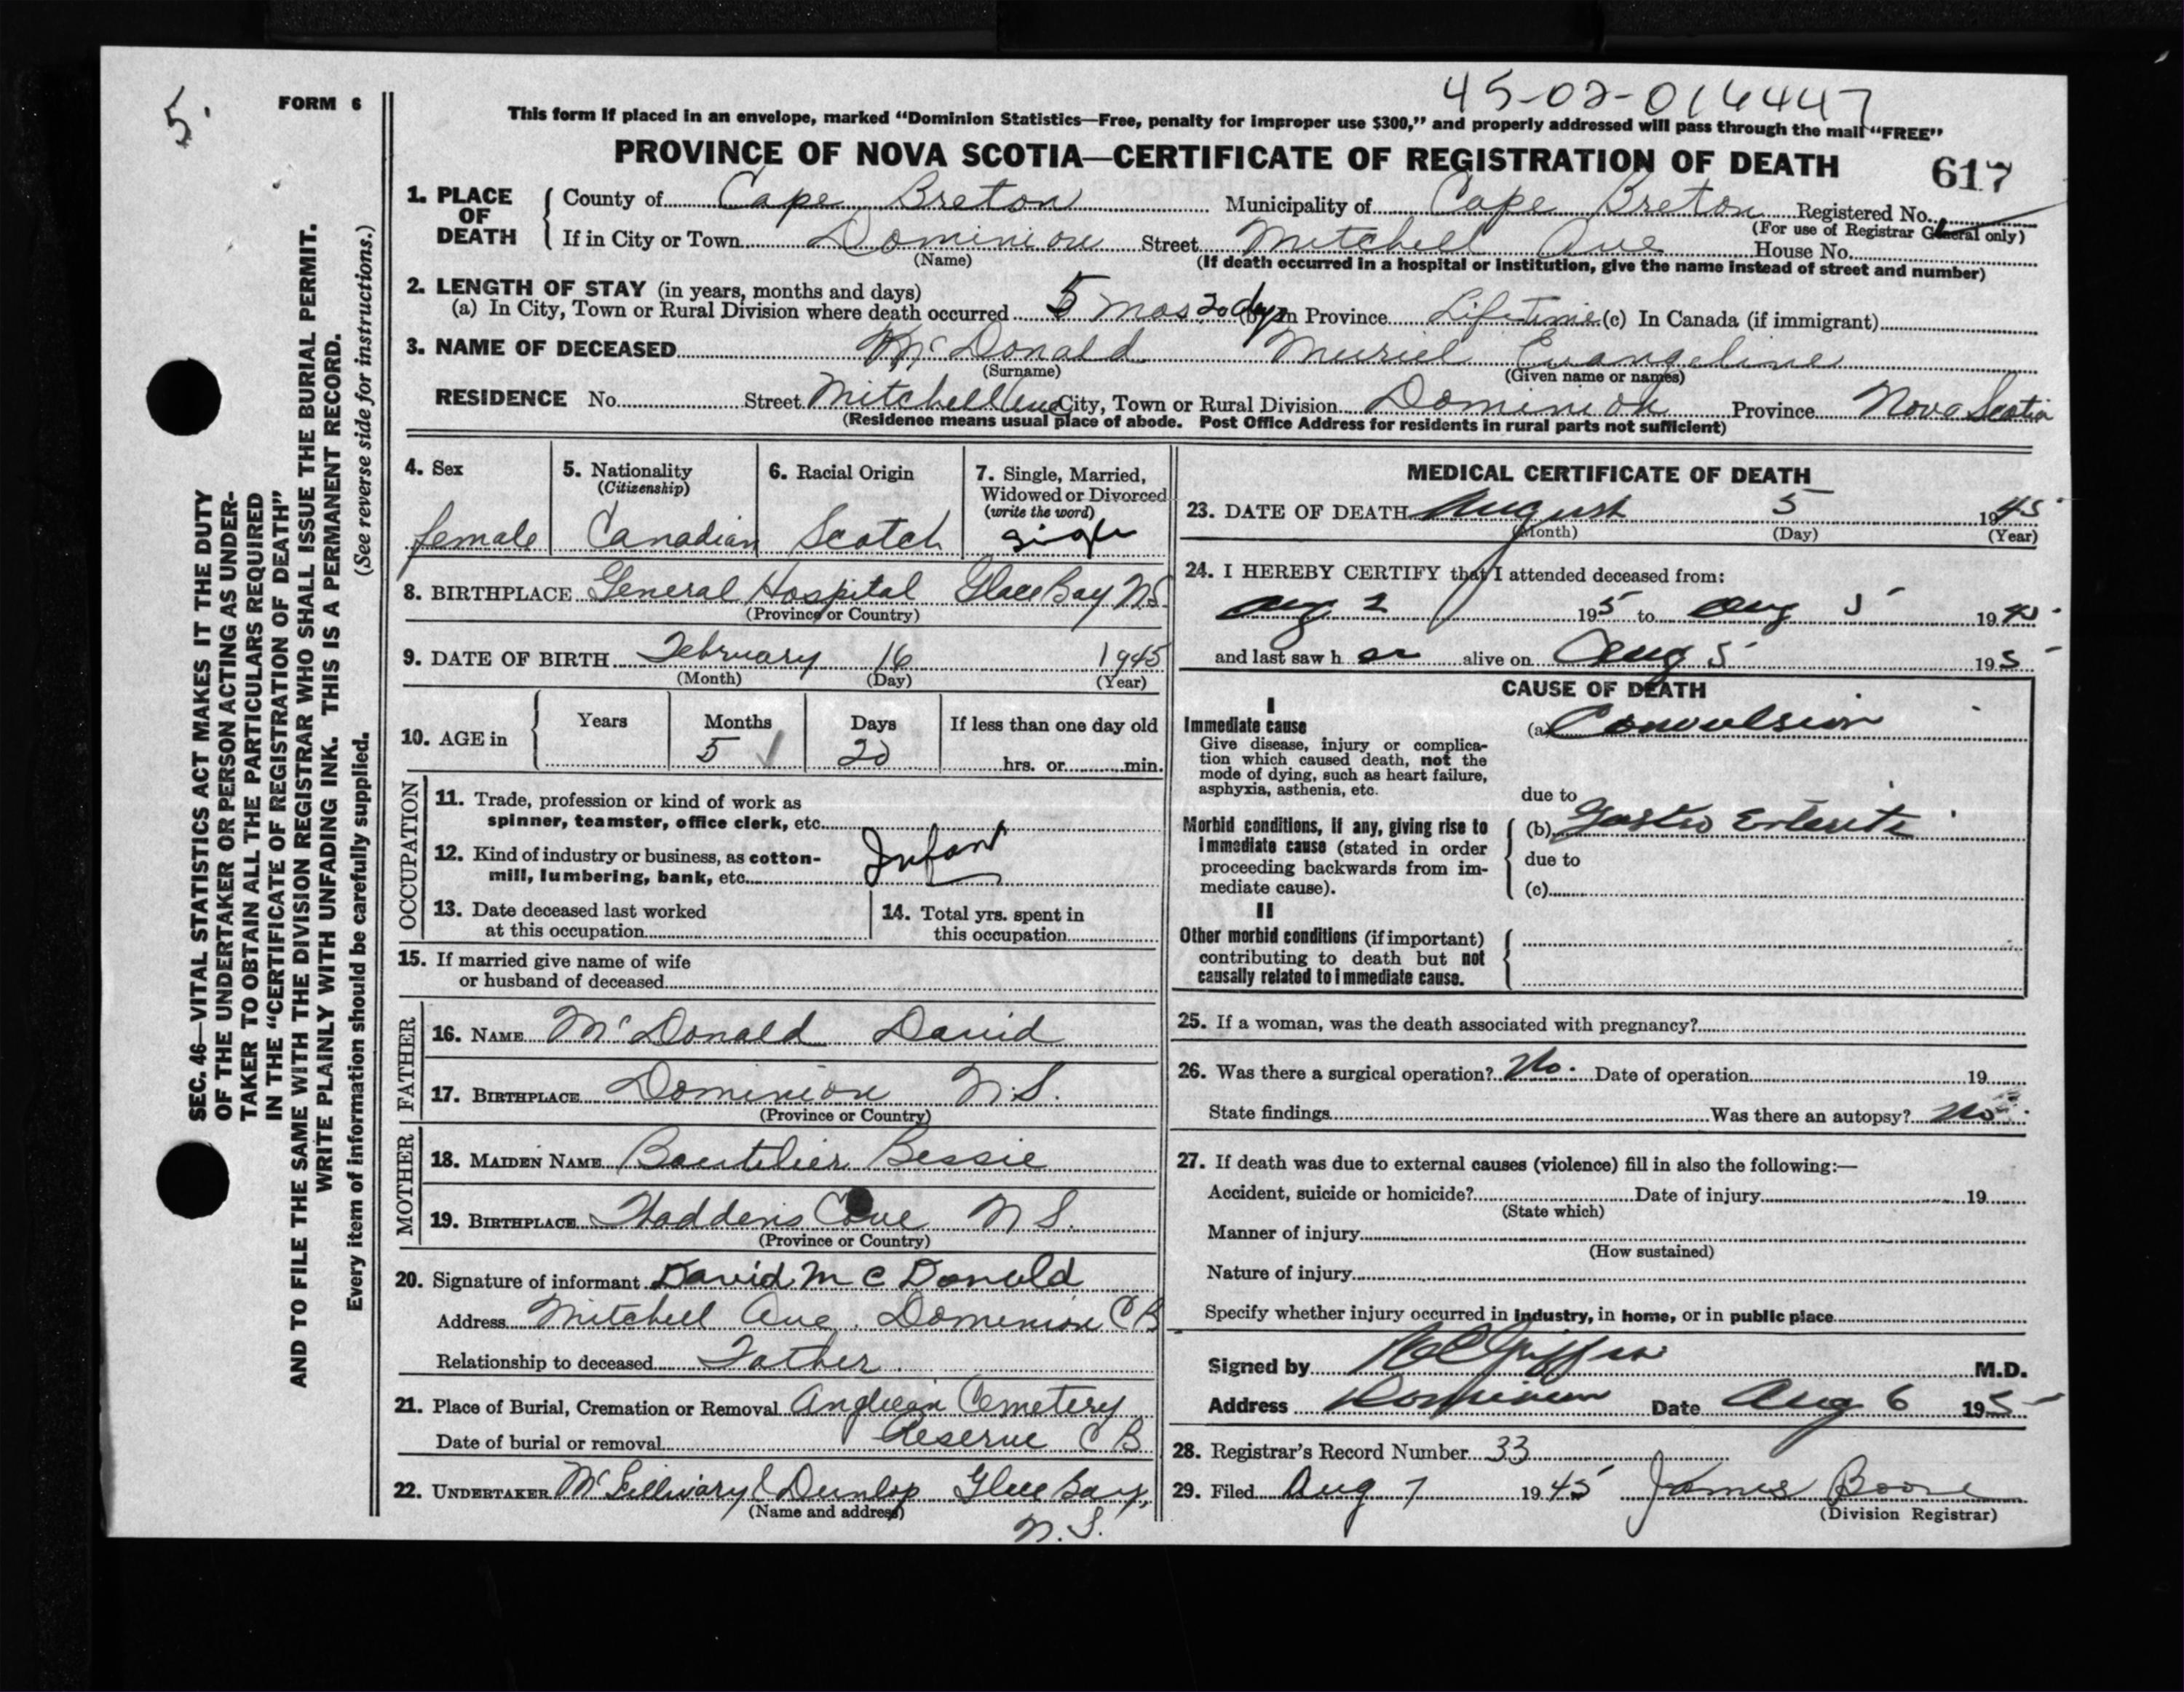 45-02-016447
5.
FORM 6
This form if placed in an envelope, marked “Dominion Statistics—Free, penalty for improper use $300,” and properly addressed will pass through the mail “FREE”
PROVINCE OF NOVA SCOTIA—CERTIFICATE OF REGISTRATION OF DEATH
617
1. PLACE OF DEATH
County of Cape Breton Municipality of Cape Breton Registered No.
(For use of Registrar General only)
If in City or Town Dominion Street Mitchell Ave House No.
(Name) (If death occurred in a hospital or institution, give the name instead of street and number)
2. LENGTH OF STAY (in years, months and days)
(a) In City, Town or Rural Division where death occurred 5 mos 20 dys (b) In Province Lifetime (c) In Canada (if immigrant)
3. NAME OF DECEASED McDonald Muriel Evangeline
(Surname) (Given name or names)
RESIDENCE No. Street Mitchell Ave City, Town or Rural Division Dominion Province Nova Scotia
(Residence means usual place of abode. Post Office Address for residents in rural parts not sufficient)
4. Sex
female
5. Nationality
(Citizenship)
Canadian
6. Racial Origin
Scotch
7. Single, Married, Widowed or Divorced
(write the word)
single
8. BIRTHPLACE General Hospital Glace Bay N.S.
(Province or Country)
9. DATE OF BIRTH February 16 1945
(Month) (Day) (Year)
10. AGE in
Years Months Days If less than one day old
5 20 hrs. or min.
OCCUPATION
11. Trade, profession or kind of work as
spinner, teamster, office clerk, etc.
12. Kind of industry or business, as cotton-
mill, lumbering, bank, etc. Infant
13. Date deceased last worked
at this occupation
14. Total yrs. spent in
this occupation
15. If married give name of wife
or husband of deceased
FATHER
16. NAME McDonald David
17. BIRTHPLACE Dominion N.S.
(Province or Country)
MOTHER
18. MAIDEN NAME Boutilier Bessie
19. BIRTHPLACE Wadden's Cove N S.
(Province or Country)
20. Signature of informant David McDonald
Address Mitchell Ave. Dominion C B
Relationship to deceased Father
21. Place of Burial, Cremation or Removal Anglican Cemetery
Date of burial or removal Reserve C B
22. UNDERTAKER McGillivary & Dunlop Glace Bay,
(Name and address)
N.S.
MEDICAL CERTIFICATE OF DEATH
23. DATE OF DEATH August 5 1945
(Month) (Day) (Year)
24. I HEREBY CERTIFY that I attended deceased from:
Aug 2 195 to Aug 5 1945
and last saw her alive on Aug 5 195
CAUSE OF DEATH
I
Immediate cause
Give disease, injury or complica-
tion which caused death, not the
mode of dying, such as heart failure,
asphyxia, asthenia, etc.
(a) Convulsion
due to
Morbid conditions, if any, giving rise to
immediate cause (stated in order
proceeding backwards from im-
mediate cause).
(b) Gastro Enteritis
due to
(c)
II
Other morbid conditions (if important)
contributing to death but not
causally related to immediate cause.
25. If a woman, was the death associated with pregnancy?
26. Was there a surgical operation? No. Date of operation 19
State findings Was there an autopsy? No
27. If death was due to external causes (violence) fill in also the following:—
Accident, suicide or homicide? Date of injury 19
(State which)
Manner of injury
(How sustained)
Nature of injury
Specify whether injury occurred in industry, in home, or in public place
Signed by M.D.
Address Dominion Date Aug 6 195
28. Registrar's Record Number 33
29. Filed Aug 7 1945 James Boone
(Division Registrar)
SEC. 46—VITAL STATISTICS ACT MAKES IT THE DUTY
OF THE UNDERTAKER OR PERSON ACTING AS UNDER-
TAKER TO OBTAIN ALL THE PARTICULARS REQUIRED
IN THE “CERTIFICATE OF REGISTRATION OF DEATH”
AND TO FILE THE SAME WITH THE DIVISION REGISTRAR WHO SHALL ISSUE THE BURIAL PERMIT.
WRITE PLAINLY WITH UNFADING INK. THIS IS A PERMANENT RECORD.
Every item of information should be carefully supplied. (See reverse side for instructions.)